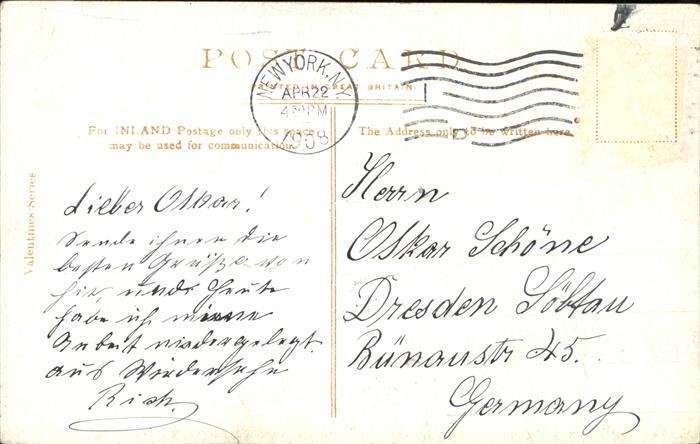 POST CARD
PRINTED IN GREAT BRITAIN.
NEW YORK, N.Y.
APR 22
4 30 PM
1909
For INLAND Postage only this space
may be used for communication.
The Address only to be written here.
Valentines Series
Lieber Oskar!
Sende ihnen die
besten Grüße von
hier und Heute
habe ich meine
Arbeit niedergelegt.
aus Wiedersehn
Rich.
Herrn
Oskar Schöne
Dresden Löbtau
Bünaustr 45.
Germany